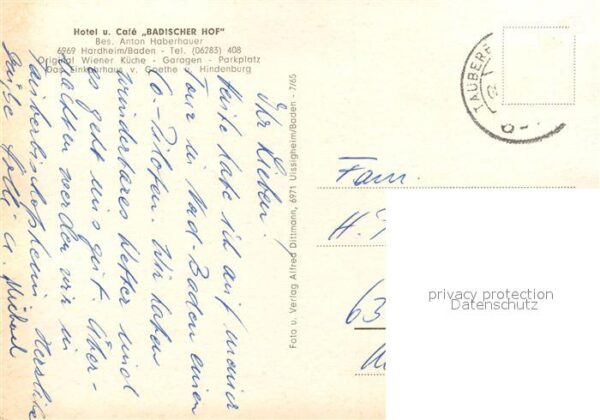 Hotel u. Café „BADISCHER HOF"
Bes. Anton Haberhauer
6969 Hardheim/Baden - Tel. (06283) 408
Original Wiener Küche - Garagen - Parkplatz
Das Einkehrhaus v. Goethe u Hindenburg
Ihr Lieben!
Heute habe ich auf meiner
Tour in Nord-Baden einen
Co-Piloten. Wir haben
wunderbares Wetter und
es geht uns gut. Über-
werden wir in
Tauberbischofsheim. Herzliche
Grüße
u. Michael
Foto u. Verlag Alfred Dittmann, 6971 Uissigheim/Baden - 7/65
TAUBERB
Fam.
H.
63
privacy protection
Datenschutz